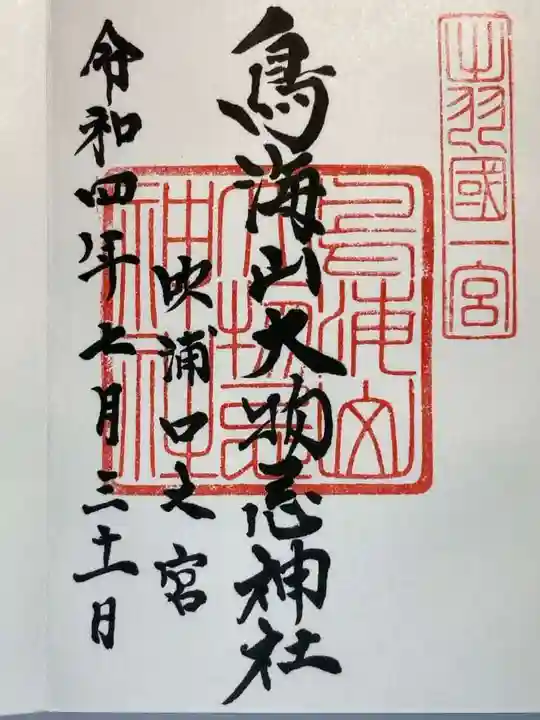 出羽國一宮
鳥海山大物忌神社
鳥海山大物忌神社
吹浦口之宮
令和四年七月三十一日